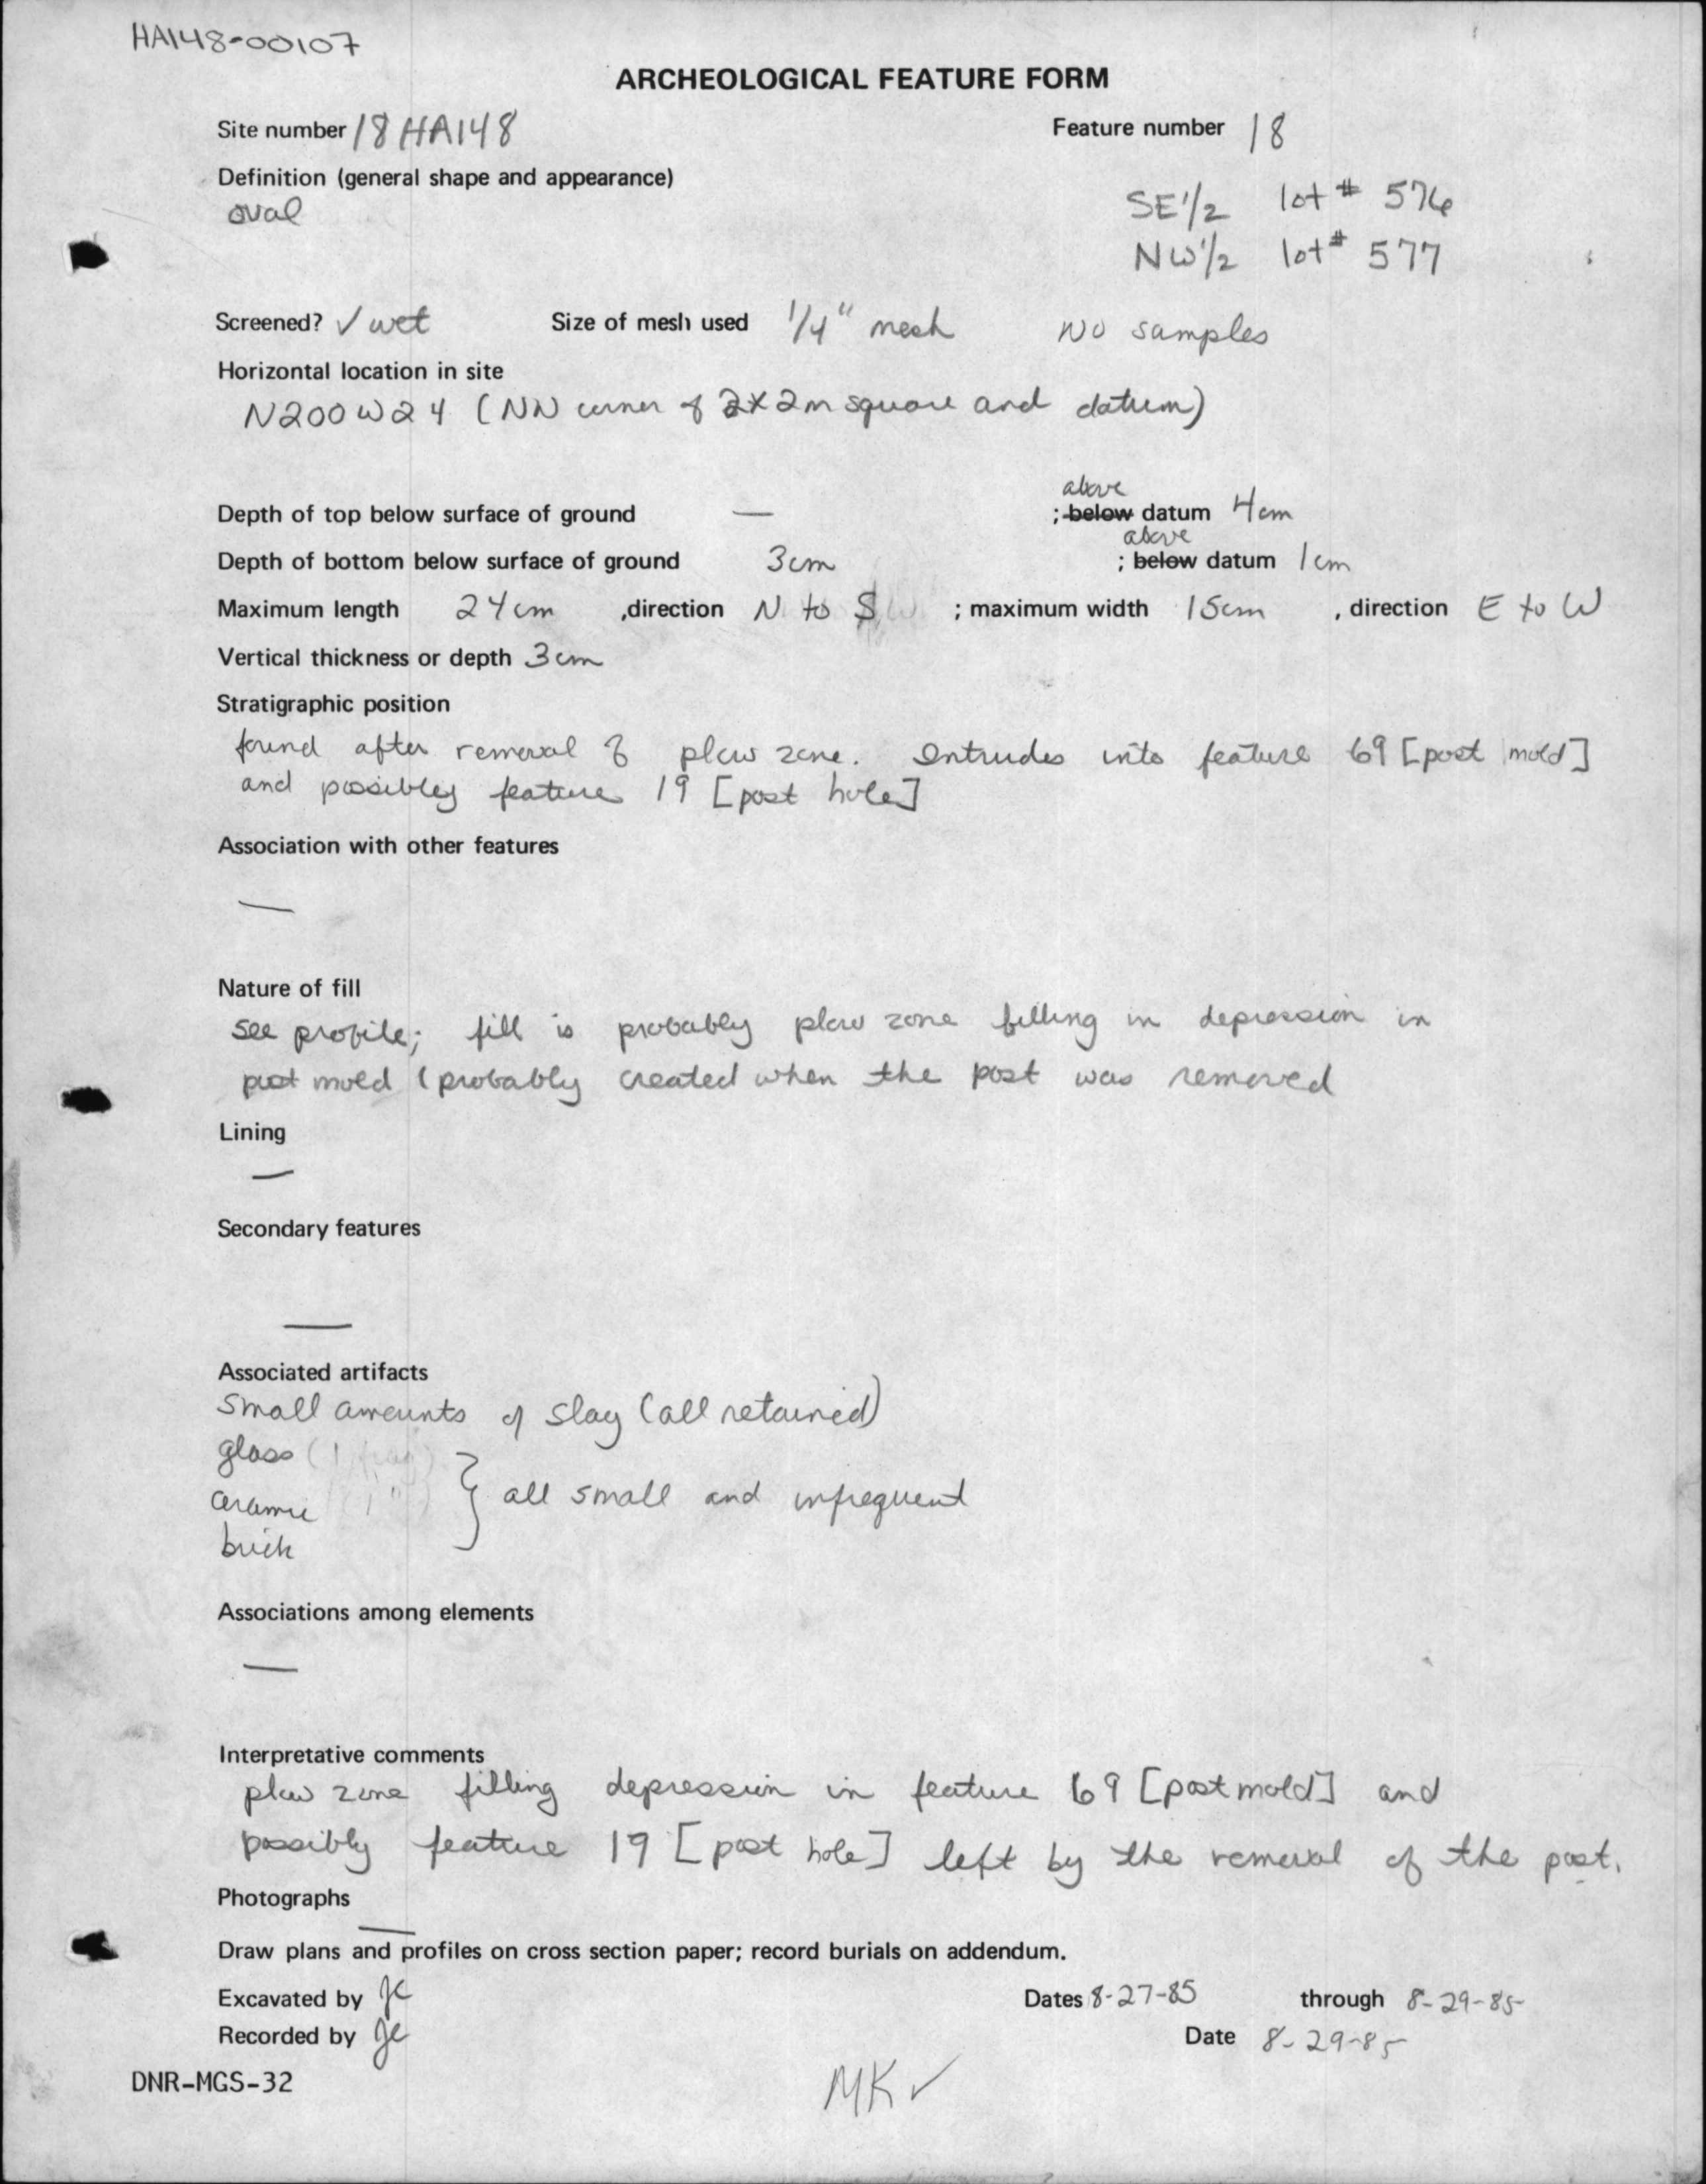 HA148-00107
ARCHEOLOGICAL FEATURE FORM
Site number 18HA148 Feature number 18
Definition (general shape and appearance)
oval
SE 1/2 lot # 576
NW 1/2 lot # 577
Screened? ✓ wet Size of mesh used 1/4" mesh No samples
Horizontal location in site
N200W24 (NW corner of 2X2m square and datum)
above
Depth of top below surface of ground — ; below datum 4cm
above
Depth of bottom below surface of ground 3cm ; below datum 1cm
Maximum length 24cm ,direction N to S ; maximum width 15cm , direction E to W
Vertical thickness or depth 3cm
Stratigraphic position
found after removal of plow zone. Intrudes into feature 69 [post mold]
and possibley feature 19 [post hole]
Association with other features
—
Nature of fill
see profile; fill is probably plow zone filling in depression in
post mold (probably created when the post was removed
Lining
—
Secondary features
—
Associated artifacts
small amounts of slag (all retained)
glass (1 frag)
ceramic (1 ")
} all small and infrequent
brick
Associations among elements
—
Interpretative comments
plow zone filling depression in feature 69 [post mold] and
possibly feature 19 [post hole] left by the removal of the post.
Photographs
—
Draw plans and profiles on cross section paper; record burials on addendum.
Excavated by JC Dates 8-27-85 through 8-29-85
Recorded by JC Date 8-29-85
DNR-MGS-32
MK ✓